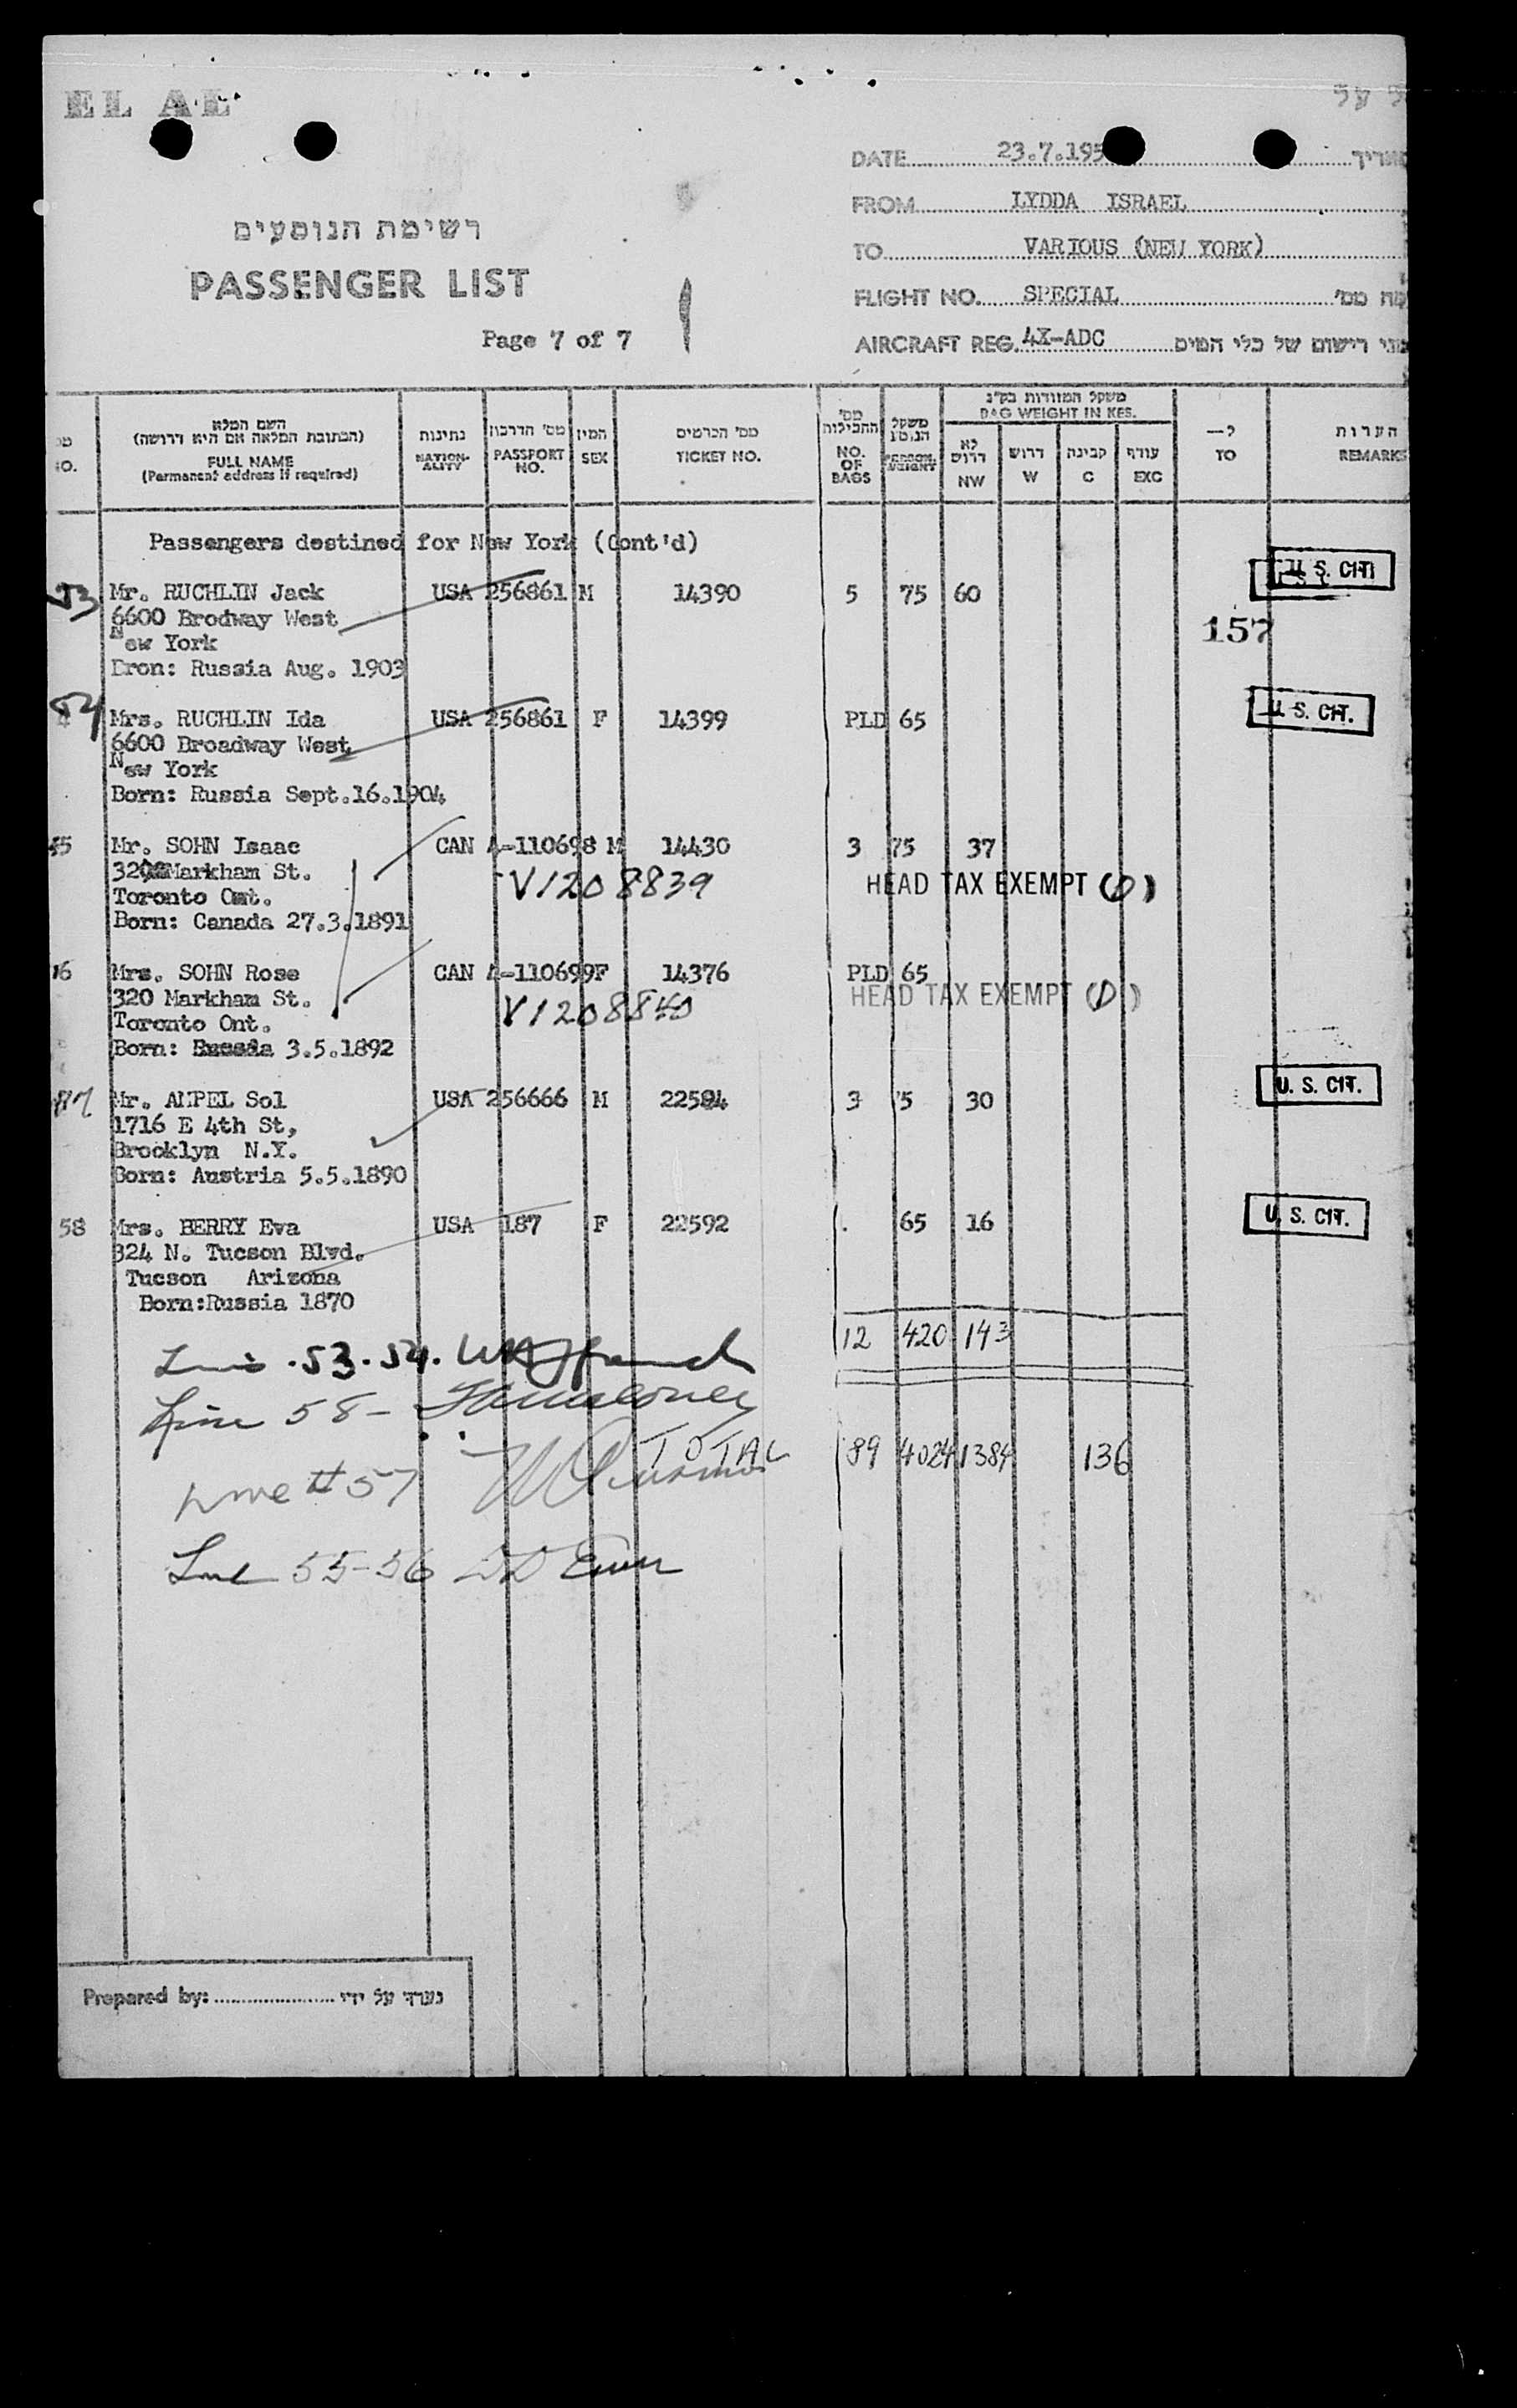 EL AL
DATE 23.7.195
FROM LYDDA ISRAEL
TO VARIOUS (NEW YORK)
FLIGHT NO. SPECIAL
AIRCRAFT REG. 4X-ADC רישום של כלי הטיס
רשימת הנוסעים
PASSENGER LIST
Page 7 of 7
משקל המזוודות בק"ג
BAG WEIGHT IN KGS.
השם המלא
(הכתובת המלאה אם היא דרושה)
FULL NAME
(Permanent address if required)
נתינות
NATION-
ALITY
מס' הדרכון
PASSPORT
NO.
המין
SEX
מס' הכרטיס
TICKET NO.
מס' החבילות
NO.
OF
BAGS
משקל הנוסע
PERSON. WEIGHT
לא דרוש
NW
דרוש
W
קבינה
C
עודף
EXC
ל—
TO
הערות
REMARKS
Passengers destined for New York (Cont'd)
53 Mr. RUCHLIN Jack USA 256861 M 14390 5 75 60 U. S. CIT.
6600 Brodway West
New York 157
Bron: Russia Aug. 1903
54 Mrs. RUCHLIN Ida USA 256861 F 14399 PLD 65 U. S. CIT.
6600 Broadway West
New York
Born: Russia Sept.16.1904
55 Mr. SOHN Isaac CAN 4-110698 M 14430 3 75 37
320 Markham St. V1208839 HEAD TAX EXEMPT (1)
Toronto Ont.
Born: Canada 27.3.1891
56 Mrs. SOHN Rose CAN 4-110699 F 14376 PLD 65
320 Markham St. V1208840 HEAD TAX EXEMPT (1)
Toronto Ont.
Born: Russia 3.5.1892
57 Mr. AMPEL Sol USA 256666 M 22584 3 75 30 U. S. CIT.
1716 E 4th St,
Brooklyn N.Y.
Born: Austria 5.5.1890
58 Mrs. BERRY Eva USA 187 F 22592 65 16 U. S. CIT.
324 N. Tucson Blvd.
Tucson Arizona
Born:Russia 1870
12 420 143
53. 54.
Line 58-
TOTAL 89 4024 1384 136
Line #57
Line 55-56
Prepared by: נערך על ידי